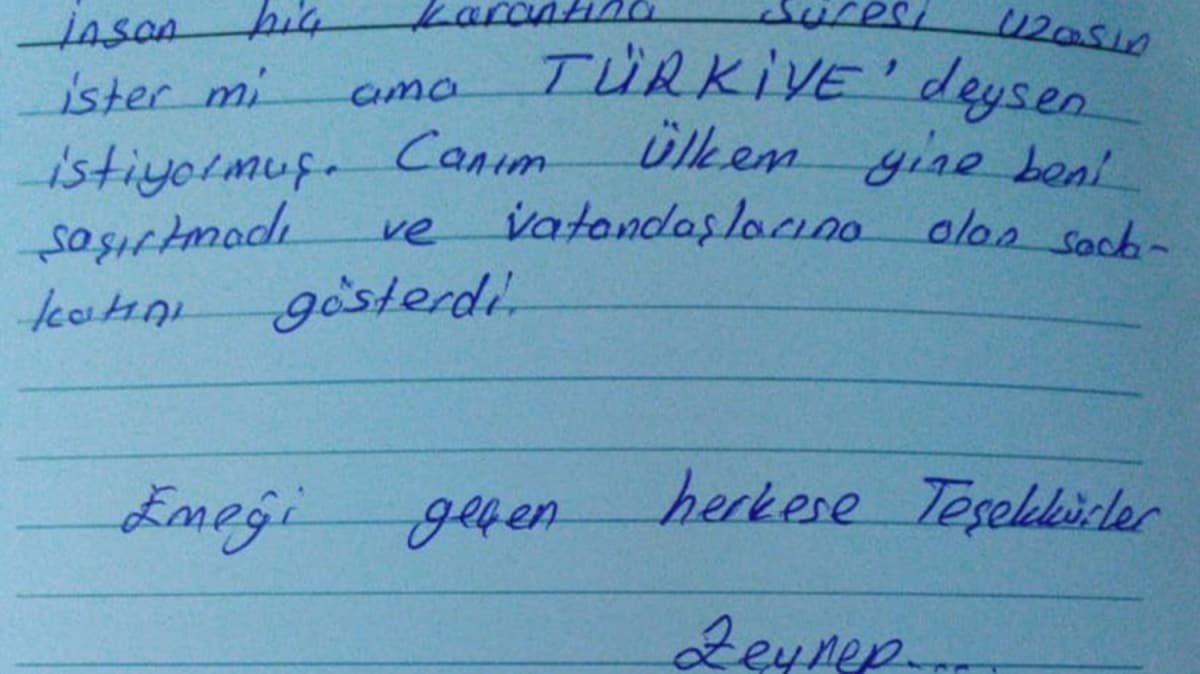 insan hiç karantina süresi uzasın
ister mi ama TÜRKİYE'deysen
istiyormuş. Canım Ülkem yine beni
şaşırtmadı ve vatandaşlarına olan sada-
katını gösterdi.
Emeği geçen herkese Teşekkürler
Zeynep.....